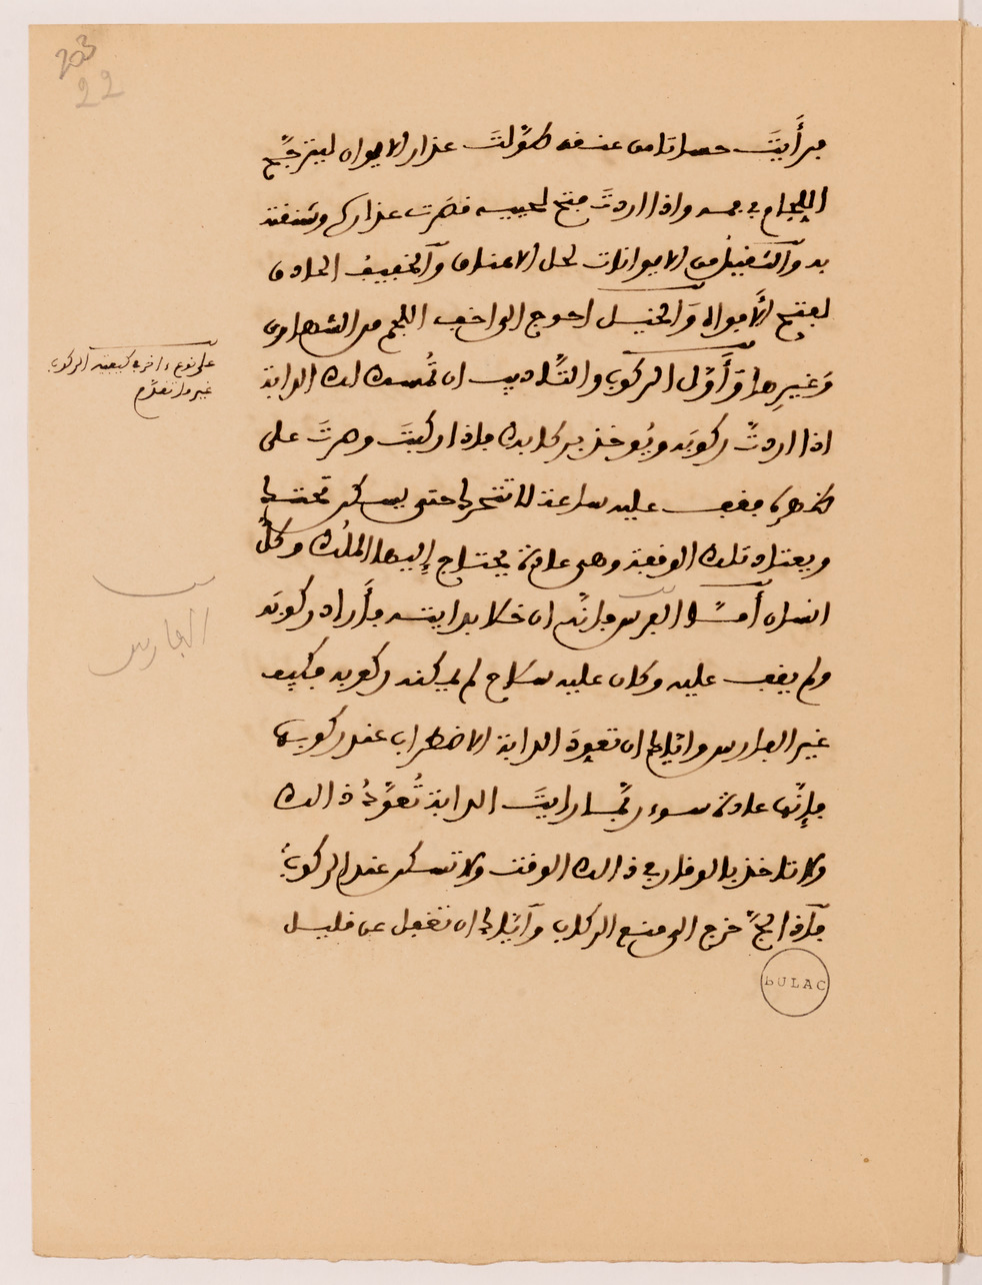 203
22
فرأيتَ حصانا من عنقه طوّلتَ عذار الايوان ليترجّح
اللجام في فمه واذا اردتَ فتح لحييه قصّرت عذارك وشنقته
به والثقيل من الايوانات لحل الاعناق والخفيف الحاد
لفتح الأفواه والخيل احوج الى اخف اللجم من الشهارى
وَغيرِها وَأَوّل الركوب والتّأديب ان تُمسك لك الدابة
اذا اردتّ ركوبَه ويُوخذ بركابك فاذا ركبتَ وصرتَ على
ظهره فقف عليه ساعة لا تتحرك حتى يسكن تحتك
ويعتاد تلك الوقفة وهى عادة يحتاج إليها الملُك وكلّ
انسان أمّا الفرس فانّه ان خلا بدابته فأراد ركوبَه
ولم يقف عليه وكان عليه سلاح لم يمكنه ركوبه فكيف
غير الفارس وايّاك ان تعود الدابة الاضطراب عند ركوبها
فإنّها عادة سوء ربّما رايتَ الدابة تُعوَّدُ ذالك
ولا تاخذ بالوقار في ذالك الوقت ولا تسكن عند الركوب
خرج الى منع الركاب وايّاك ان تغفل عن قليل
على نوع ءاخر في كيفية الركوب
غير ما تقدّم
الفارس
BULAC